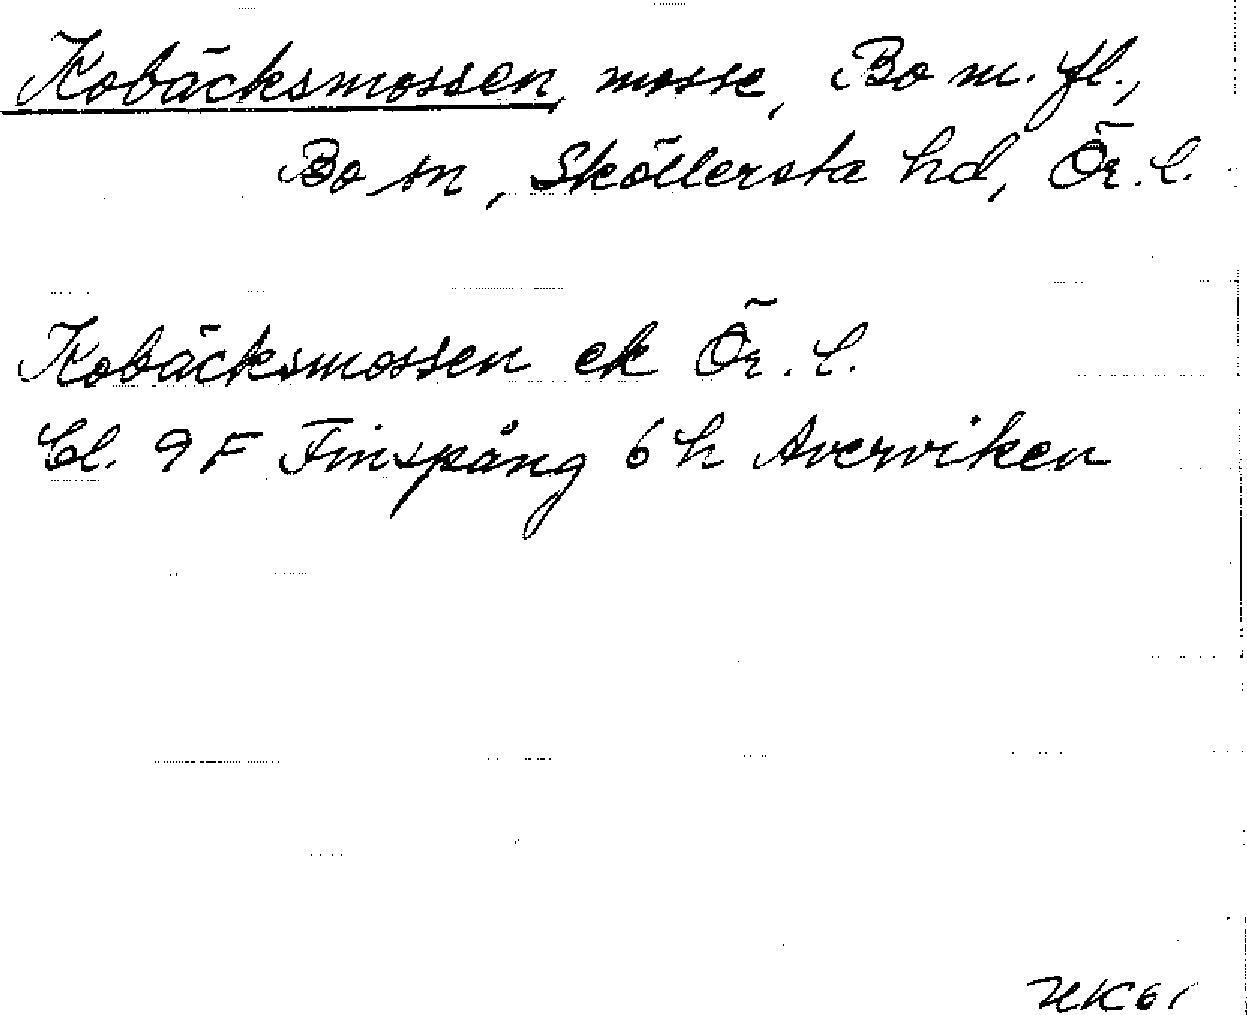 Kobäcksmossen, mosse, Bo m. fl.,
Bo sn, Sköllersta hd, Ör. l.
Kobäcksmossen ek Ör. l.
bl. 9 F Finspång 6 h Averviken
HK 61